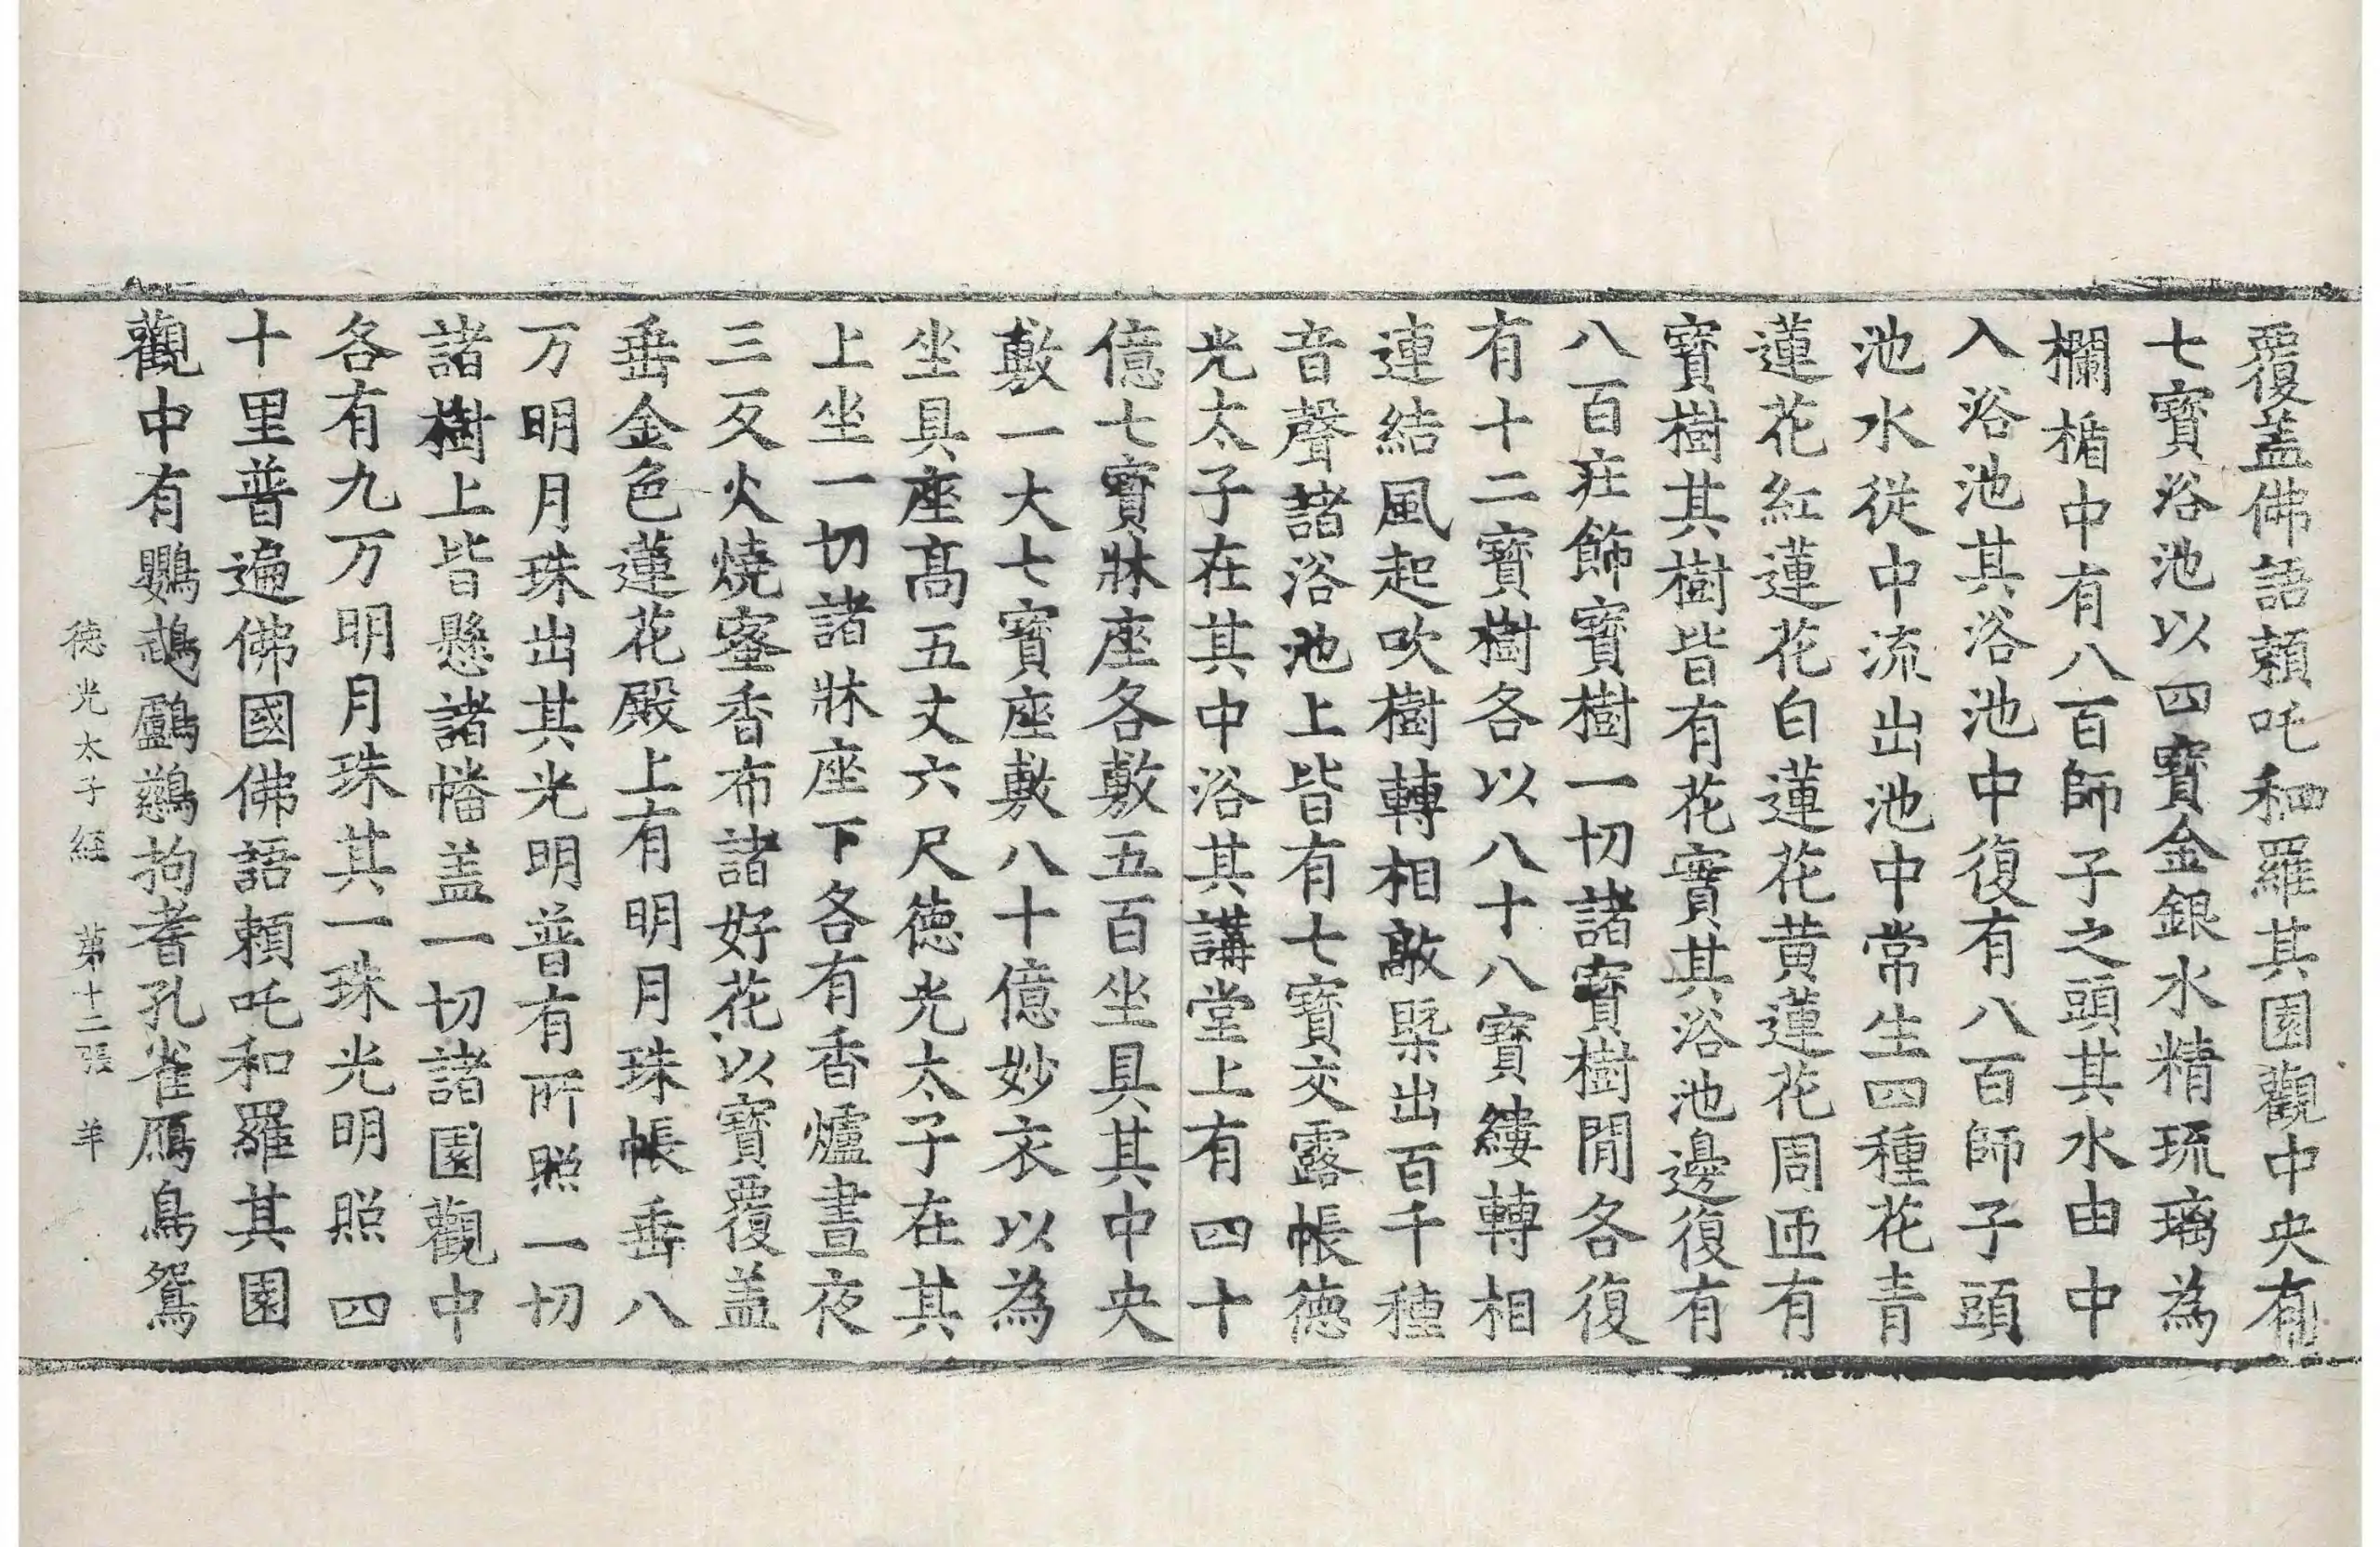 覆蓋佛語頼吒和羅其園觀中央有
七寳浴池以四寳金銀水精琉璃為
欄楯中有八百師子之頭其水由中
入浴池其浴池中復有八百師子頭
池水從中流出池中常生四種花青
蓮花紅蓮花白蓮花黄蓮花周匝有
寳樹其樹皆有花實其浴池邊復有
八百庄飾寳樹一切諸寳樹閒各復
有十二寳樹各以八十八寳縷轉相
連結風起吹樹轉相敲槩出百千種
音聲諸浴池上皆有七寳交露帳徳
光太子在其中浴其講堂上有四十
億七寳牀座各敷五百坐具其中央
敷一大七寳座敷八十億妙衣以為
坐具座髙五丈六尺徳光太子在其
上坐一切諸牀座下各有香爐晝夜
三反火燒蜜香布諸好花以寳覆盖
垂金色蓮花殿上有明月珠帳垂八
万明月珠出其光明普有所照一切
諸樹上皆懸諸幡盖一切諸園觀中
各有九万明月珠其一珠光明照四
十里普遍佛國佛語頼吒和羅其園
觀中有鸚鵡鸕鷀拘耆孔雀鴈鳥鴛
徳光太子經 第十二張 羊